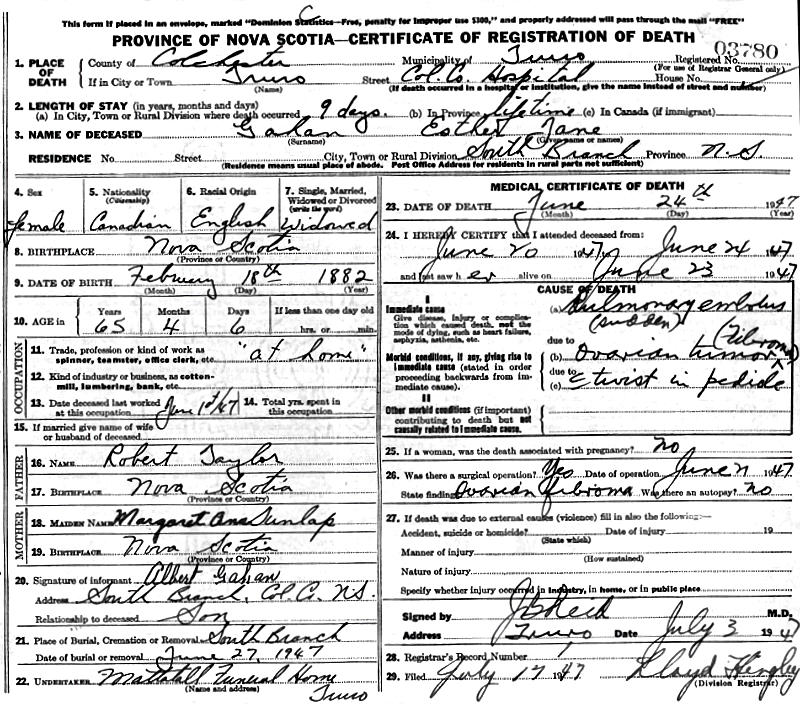 This form if placed in an envelope, marked "Dominion Statistics—Free, penalty for improper use $300," and properly addressed will pass through the mail "FREE"
PROVINCE OF NOVA SCOTIA—CERTIFICATE OF REGISTRATION OF DEATH
03780
1. PLACE OF DEATH County of Colchester Municipality of Truro Registered No.
(For use of Registrar General only)
If in City or Town Truro Street Col. Co. Hospital House No.
(Name) (If death occurred in a hospital or institution, give the name instead of street and number)
2. LENGTH OF STAY (in years, months and days)
(a) In City, Town or Rural Division where death occurred 9 days. (b) In Province lifetime (c) In Canada (if immigrant)
3. NAME OF DECEASED Gahan Esther Jane
(Surname) (Given name or names)
RESIDENCE No. Street City, Town or Rural Division South Branch Province N.S.
(Residence means usual place of abode. Post Office Address for residents in rural parts not sufficient)
4. Sex 5. Nationality (Citizenship) 6. Racial Origin 7. Single, Married, Widowed or Divorced (write the word)
female Canadian English Widowed
8. BIRTHPLACE Nova Scotia
(Province or Country)
9. DATE OF BIRTH February 18th 1882
(Month) (Day) (Year)
10. AGE in Years Months Days If less than one day old
65 4 6 hrs. or min.
OCCUPATION
11. Trade, profession or kind of work as spinner, teamster, office clerk, etc. "at home"
12. Kind of industry or business, as cotton-mill, lumbering, bank, etc.
13. Date deceased last worked at this occupation June 1st/47 14. Total yrs. spent in this occupation
15. If married give name of wife or husband of deceased
FATHER
16. NAME Robert Taylor
17. BIRTHPLACE Nova Scotia
MOTHER
18. MAIDEN NAME Margaret Ann Dunlap
19. BIRTHPLACE Nova Scotia
(Province or Country)
20. Signature of informant Albert Gahan
Address South Branch, Col. C. N.S.
Relationship to deceased Son
21. Place of Burial, Cremation or Removal South Branch
Date of burial or removal June 27, 1947
22. UNDERTAKER Mattatall Funeral Home
(Name and address) Truro
MEDICAL CERTIFICATE OF DEATH
23. DATE OF DEATH June 24th 1947
(Month) (Day) (Year)
24. I HEREBY CERTIFY that I attended deceased from:
June 20 1947 to June 24 1947
and last saw h er alive on June 23 1947
CAUSE OF DEATH
I
Immediate cause
Give disease, injury or complication which caused death, not the mode of dying, such as heart failure, asphyxia, asthenia, etc.
(a) Pulmonary embolus
(sudden)
Morbid conditions, if any, giving rise to immediate cause (stated in order proceeding backwards from immediate cause).
due to (Fibroma)
(b) Ovarian tumor
due to
(c) c twist in pedicle
II
Other morbid conditions (if important) contributing to death but not causally related to immediate cause.
25. If a woman, was the death associated with pregnancy? no
26. Was there surgical operation? Yes Date of operation June 21 1947
State findings Ovarian fibroma Was there an autopsy? No
27. If death was due to external causes (violence) fill in also the following:—
Accident, suicide or homicide? Date of injury 19
(State which)
Manner of injury
(How sustained)
Nature of injury
Specify whether injury occurred in industry, in home, or in public place
Signed by J B Reid M.D.
Address Truro Date July 3 1947
28. Registrar's Record Number
29. Filed July 17 1947 Lloyd
(Division Registrar)